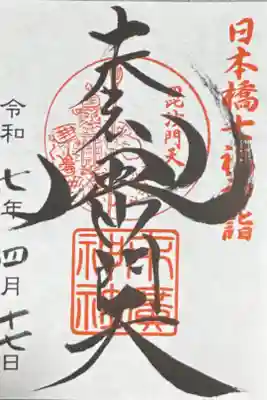 日本橋七福神詣
毘沙門天
毘沙門天
末廣
神社
令和七年四月十七日